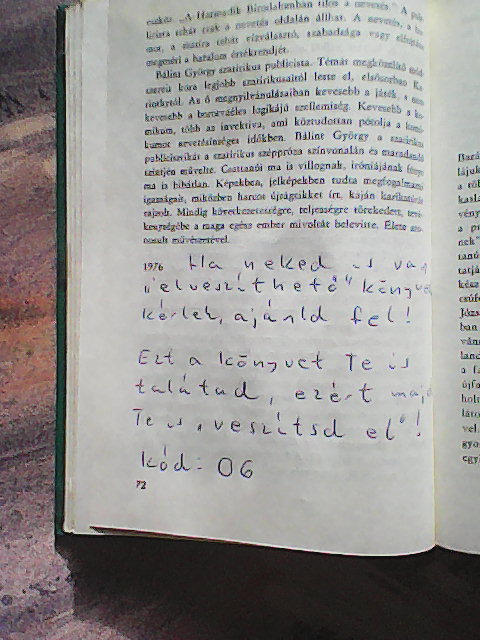 eszköz. „A Harmadik Birodalomban tilos a nevetés." A pub-
licista tehát csak a nevetés oldalán állhat. A nevetés, a hu-
mor, a szatíra tehát vízválasztó, szabadsága vagy elnyomása
megméri a hatalom értékrendjét.
Bálint György szatirikus publicista. Témát megközelítő mód-
szereit kora legjobb szatirikusaitól leste el, elsősorban Ka-
rinthytól. Az ő megnyilvánulásaiban kevesebb a játék, s nem
kevesebb a bravúros logikájú szellemiség. Kevesebb a ko-
mikum, több az invektíva, ami köztudottan pótolja a komi-
kumot nevetésínséges időkben. Bálint György a szatirikus
publicisztikát a szatirikus széppróza színvonalán és maradandó
szintjén művelte. Csattanói ma is villognak, iróniájának fénye
ma is hibátlan. Képekben, jelképekben tudta megfogalmazni
igazságait, miközben harcos újságcikket írt, kaján karikatúrát
rajzolt. Mindig következetességre, teljességre törekedett, tevé-
kenységébe a maga egész ember mivoltát belevitte. Élete azo-
nosult művészetével.
1976 Ha neked is van
„elveszíthető" könyved
kérlek, ajánld fel!
Ezt a könyvet Te is
találtad, ezért majd
Te is „veszítsd el"!
kód: 06
72